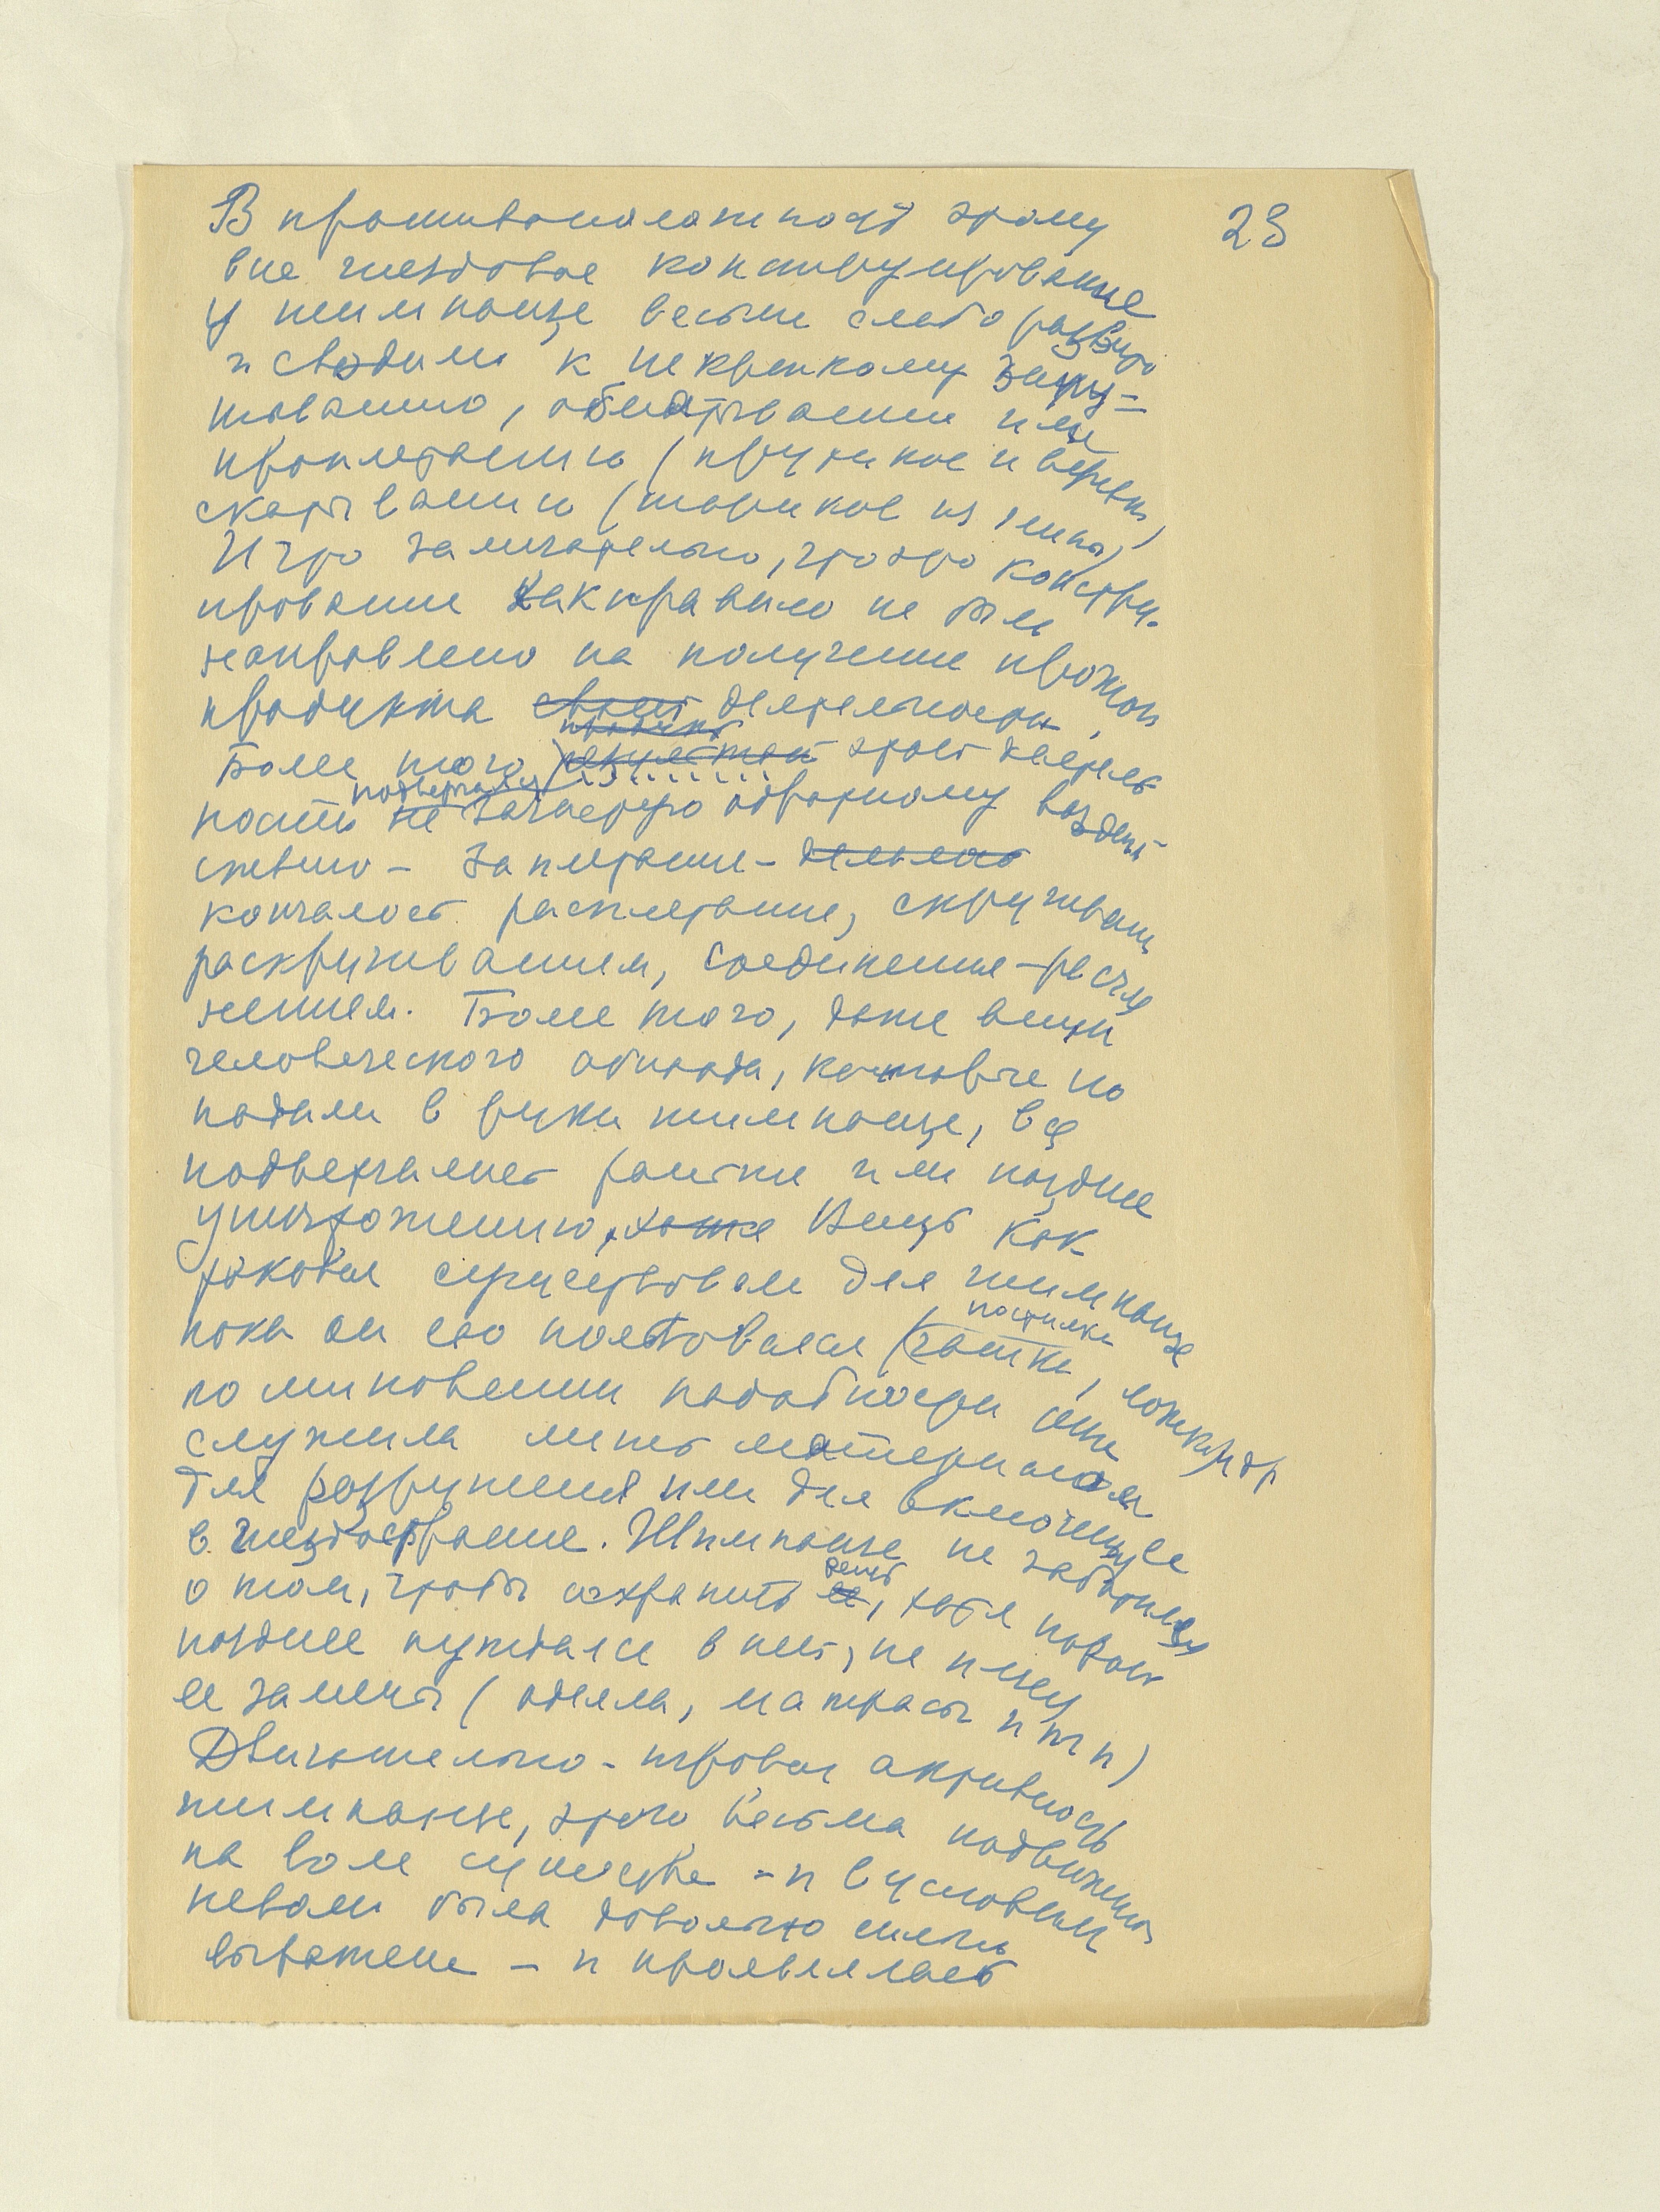 23
В противоположность этому
вне гнездовое конструирование
у шимпанзе весьма слабо развито
и сводими к некрепкому закру=
тованию, обматывании или
проплетанию (прутиков и веревки)
скатыванию (шариков из глины)
И что замечательно, что это констру-
ирование как правило не было
направлено на получение
продукта своей деятельности,
Более того, продукт этой деятель
ности подвергался зачастую обратному воздей-
ствию – Заплетание – делалось
кончалось расплетание, скручивани
раскручиванием, соединение – расчле
нением. Более того, даже вещи
человеческого обихода, которые по
падали в руки шимпанзе, все
подвергались раньше или позднее
уничтожению, Вещь как
таковая существовала для шимпанзе
пока он ею пользовался (чашки, постилка, ложки) и др
по миновении надобности она
служила лишь материалом
для разрушения или для включения ее
в гнездостроение. Шимпанзе не заботился
о том, чтобы сохранить ее вещь, хотя порой
позднее нуждался в ней, не имея
ее замены (одеяла, матрасы и т п)
Двигательно-игровая активность
шимпанзе, этого весьма подвижного
на воле существа – и в условиях
неволи была довольно сильно
выражена – и проявлялась